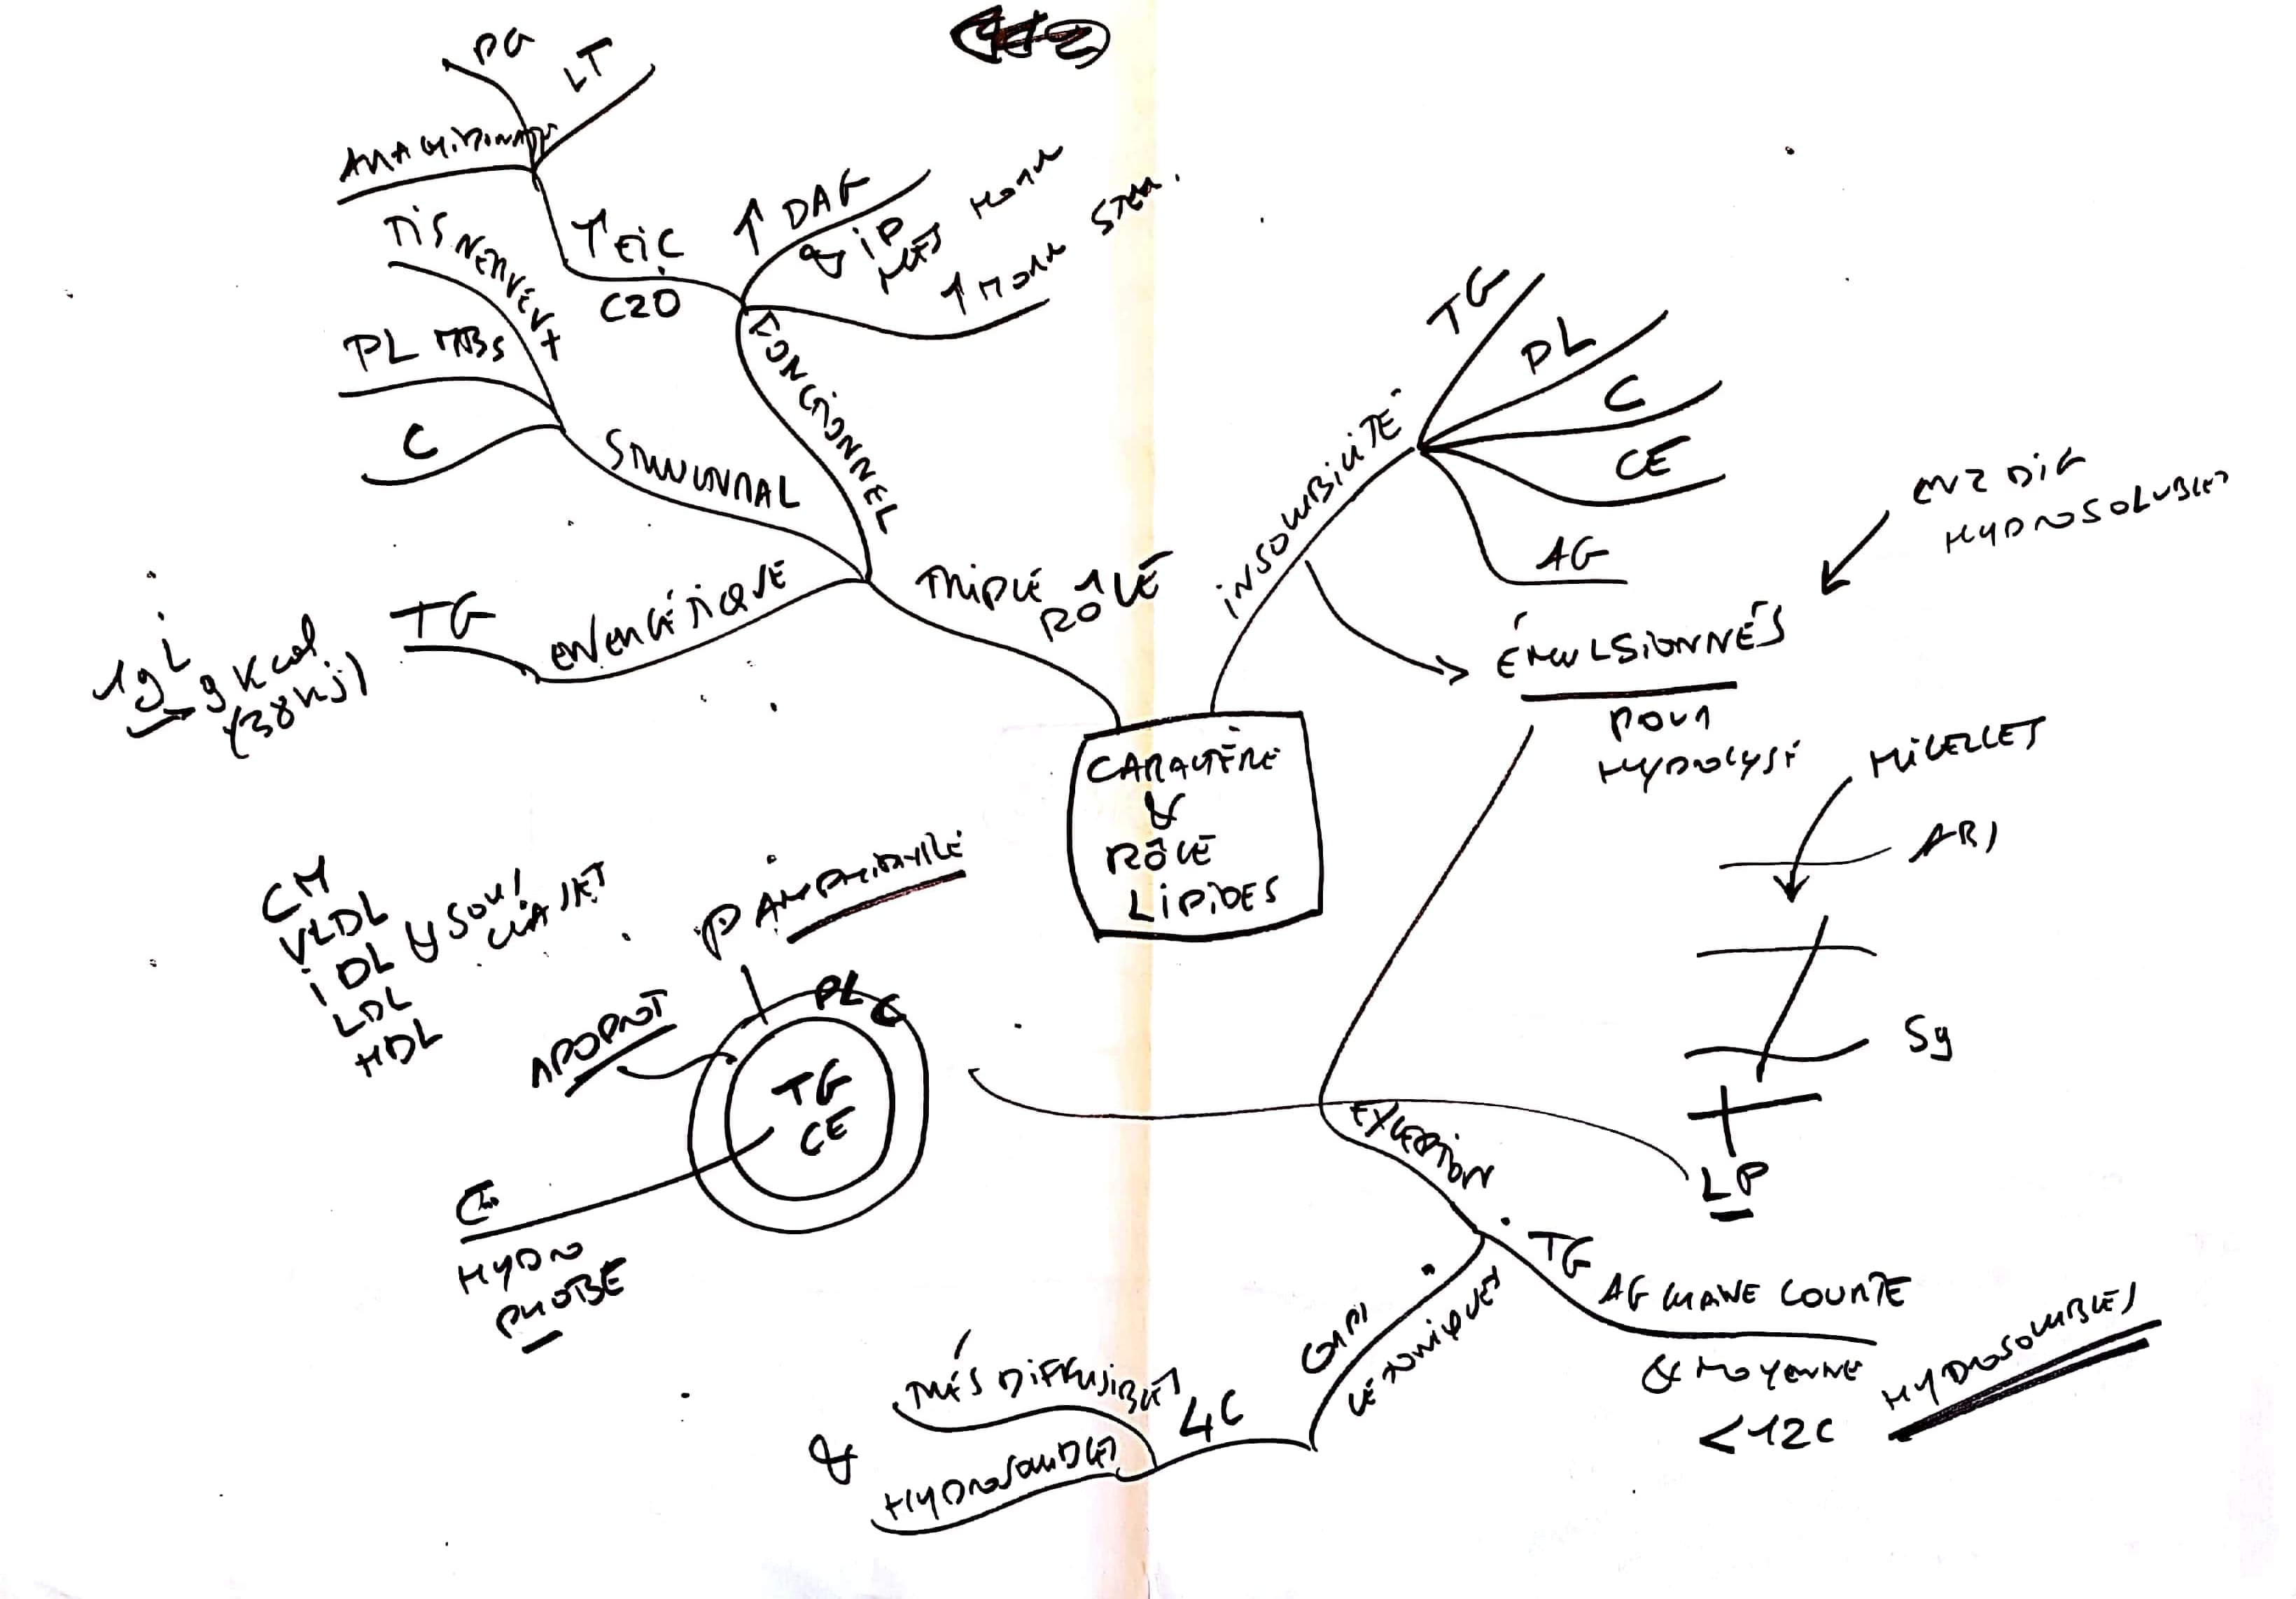 PG
LT
TIS NERVEUX
PL MBS
C
EIC
C20
↑ DAG
& iP
↑ HORM STER.
FONCTIONNEL
STRUCTURAL
ENERGÉTIQUE
TG
1g L
9 Kcal
(38 Kj)
TRIPLE
RÔLE
CARACTÈRE
&
RÔLE
LIPIDES
INSOLUBILITÉ
TG
PL
C
CE
AG
ENZ DIG
HYDROSOLUBLES
ÉMULSIONNÉS
POUR
HYDROLYSE
MICELLES
ABS
Sg
LP
EXCEPTION
TG
AG CHAINE COURTE
& MOYENNE
<12C
HYDROSOLUBLES
CORPS
CÉTONIQUES
4C
TRÉS DIFFUSIBLES
&
HYDROSOLUBLES
CM
VLDL
IDL
LDL
HDL
P AMPHIPHILE
APOPROT
PL C
TG
CE
HYDRO
PHOBE